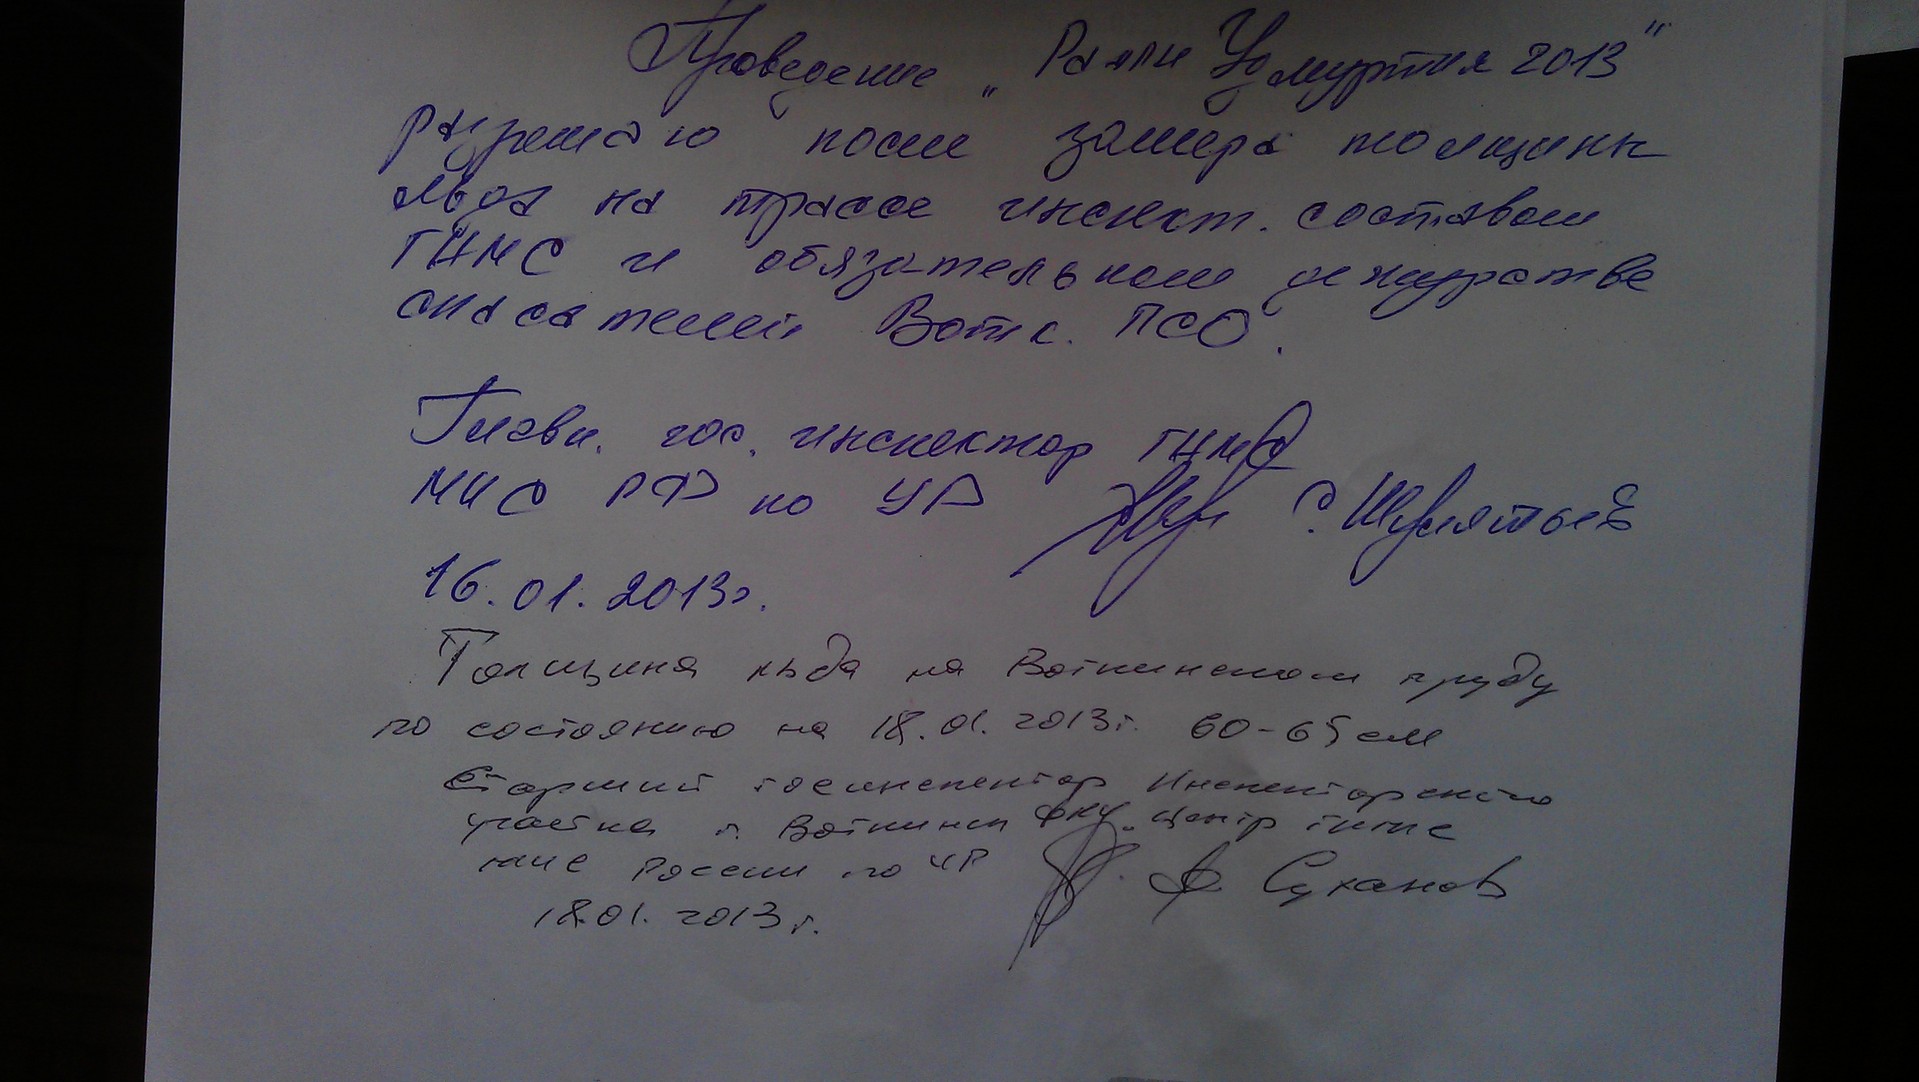 Проведение „Ралли Удмуртия 2013"
разрешаю после замера толщины
льда на трассе инспект. составом
ГИМС и обязательном дежурстве
спасателей Вотк. ПСО.
Главн. гос. инспектор ГИМС
МЧС РФ по УР С. Шулятьев
16.01.2013г.
Толщина льда на Воткинском пруду
по состоянию на 18.01.2013г. 60-65см
Старший госинспектор Инспекторского
участка г. Воткинск ФКУ „Центр ГИМС
МЧС России по УР А. Суханов
18.01.2013г.